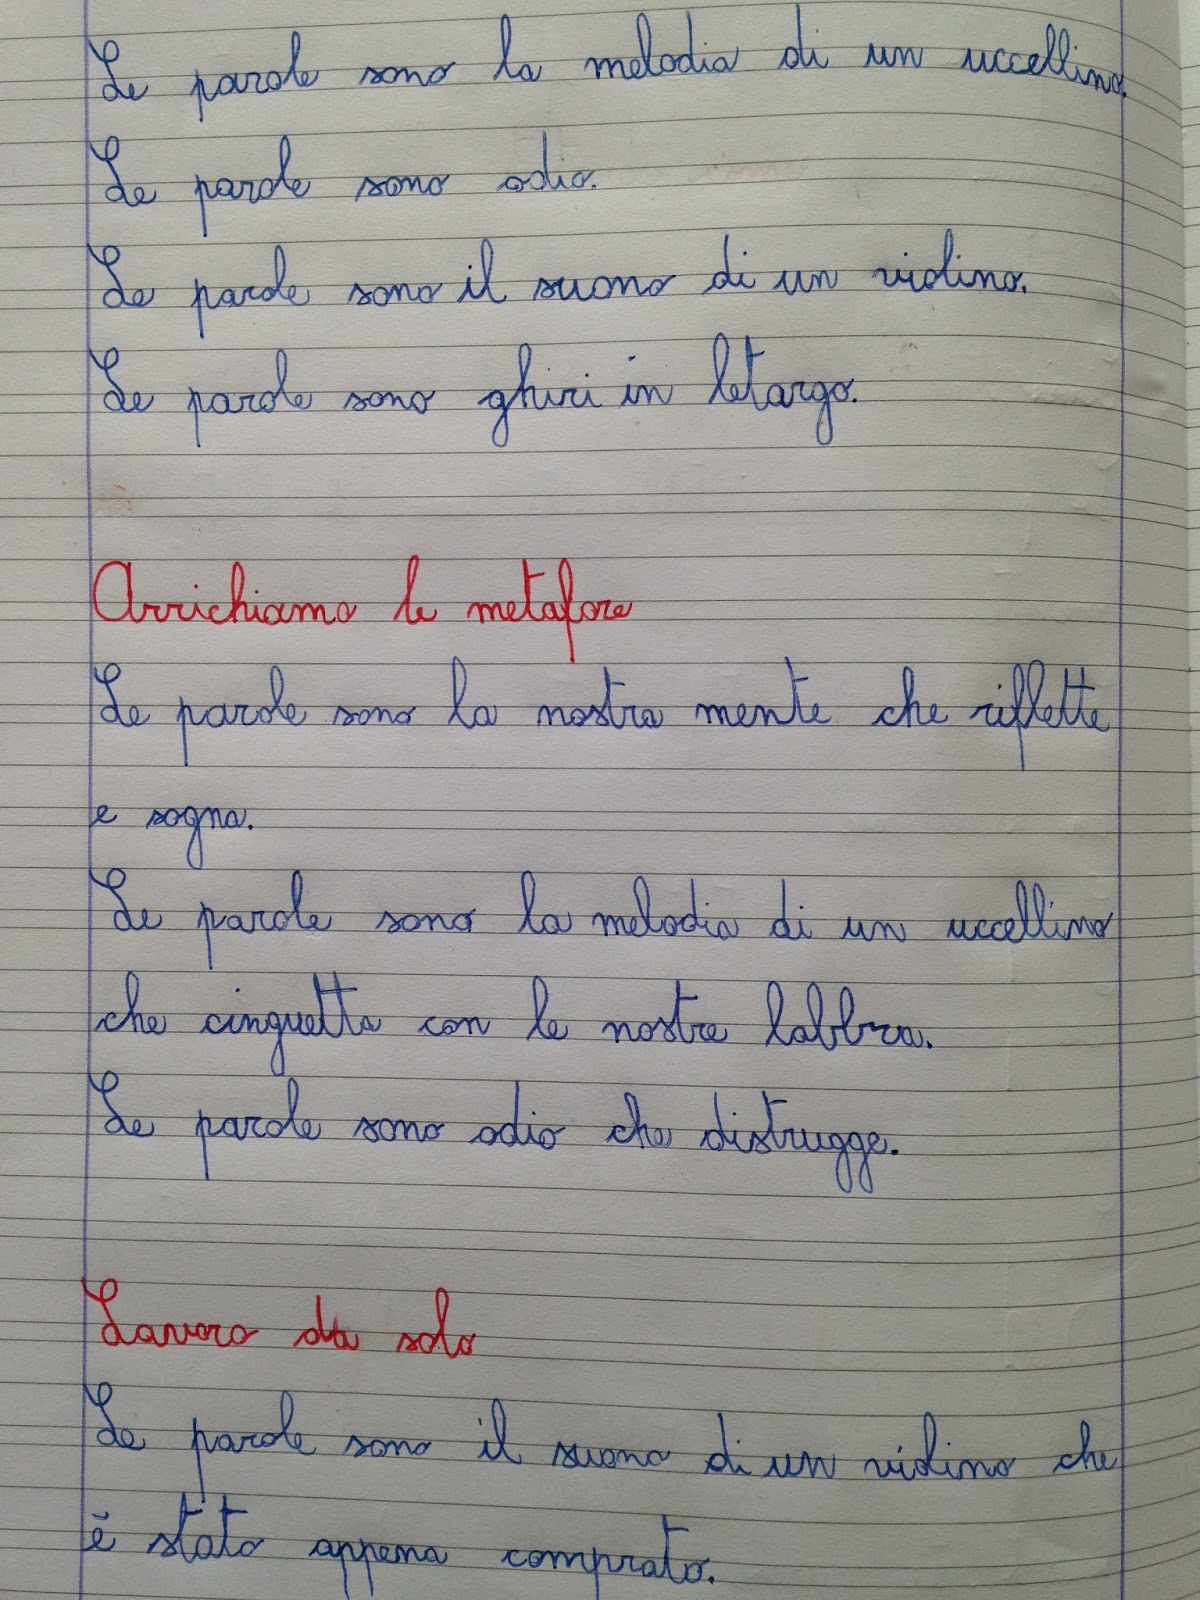 Le parole sono la melodia di un uccellino.
Le parole sono odio.
Le parole sono il suono di un violino.
Le parole sono ghiri in letargo.
Arrichiamo le metafore
Le parole sono la nostra mente che riflette
e sogna.
Le parole sono la melodia di un uccellino
che cinguetta con le nostre labbra.
Le parole sono odio che distrugge.
Lavoro da solo
Le parole sono il suono di un violino che
è stato appena comprato.